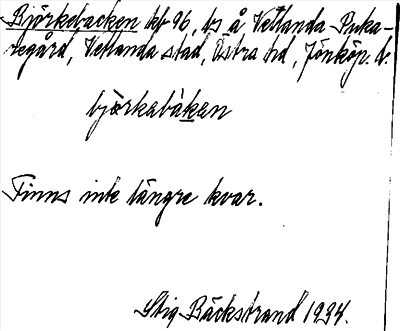 Björkebacken kb 96, bs å Vetlanda Puka-
regård, Vetlanda stad, Östra hd, Jönköp. l.
björkabàken
Finns inte längre kvar.
Stig Bäckstrand 1934.